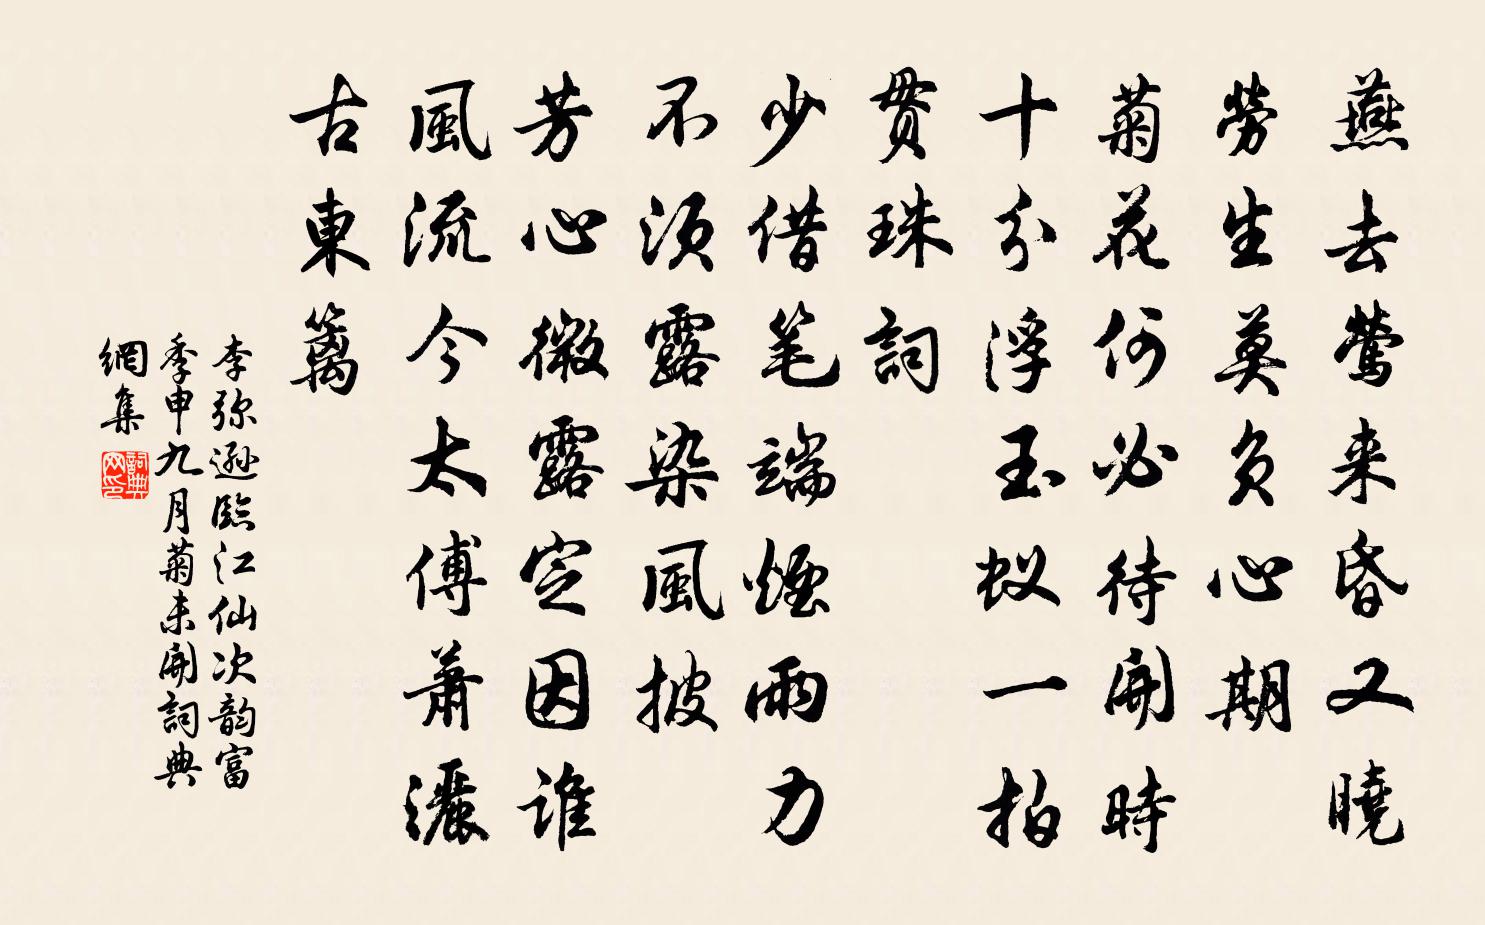 燕去鶯来昏又曉
勞生莫负心期
菊花何必待開時
十分浮玉蚁一拍
贯珠詞
少借笔端煙雨力
不须露染風披
芳心微露定因谁
風流今太傅蕭灑
古東籬
李弥遜臨江仙次韵富
季申九月菊未開詞典
網集
詞典网印